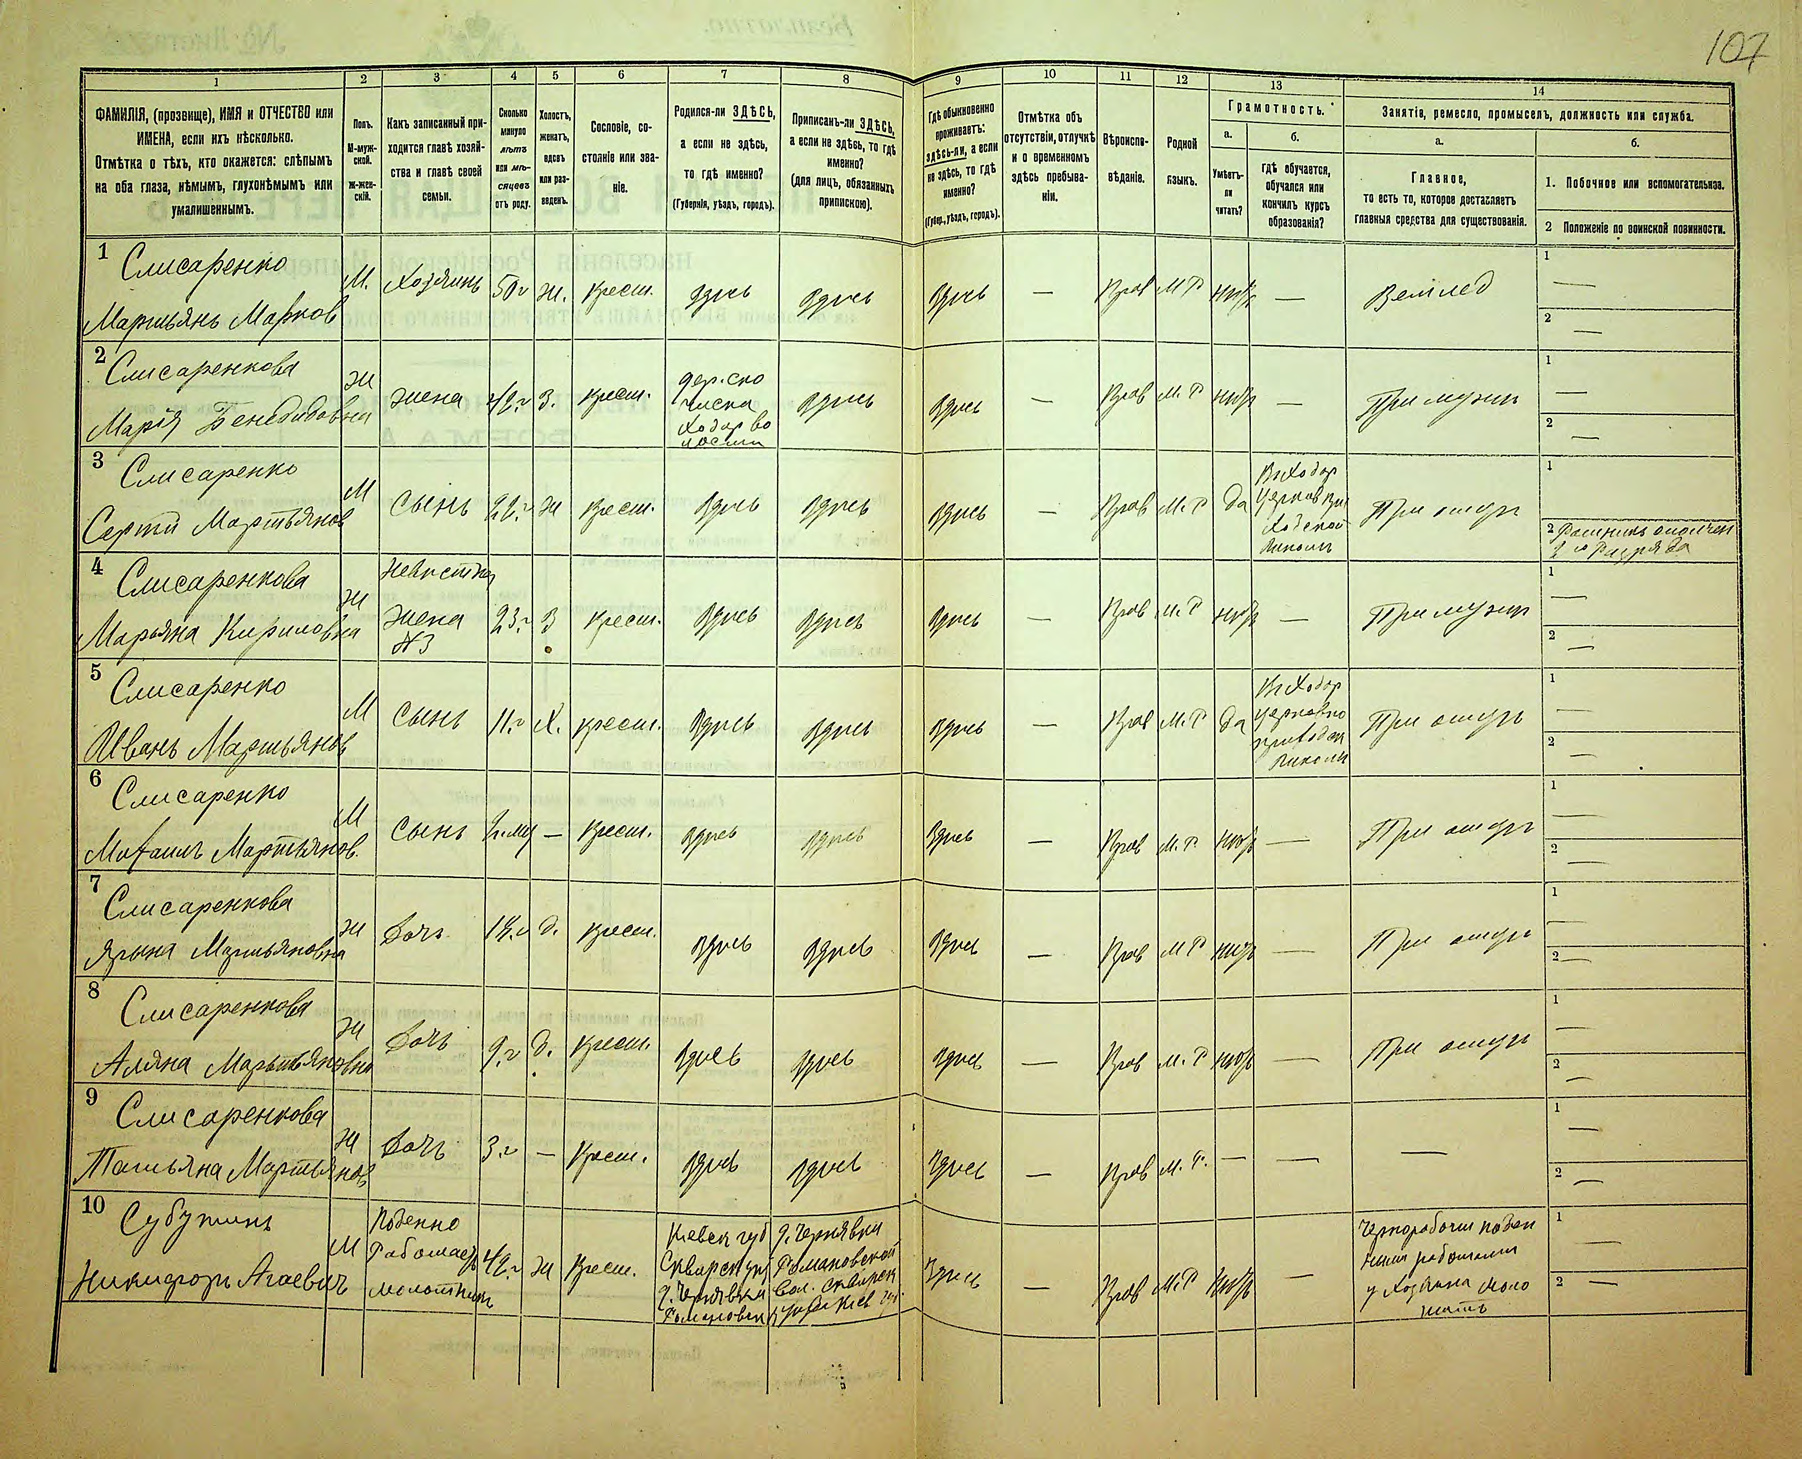 107
1 2 3 4 5 6 7 8 9 10 11 12 13 14
ФАМИЛІЯ, (прозвище), ИМЯ и ОТЧЕСТВО или
ИМЕНА, если ихъ нѣсколько.
Отмѣтка о тѣхъ, кто окажется: слѣпымъ
на оба глаза, нѣмымъ, глухонѣмымъ или
умалишеннымъ.
Полъ.
М-муж-
ской.
Ж-жен-
скій.
Какъ записанный при-
ходится главѣ хозяй-
ства и главѣ своей
семьи.
Сколько
минуло
лѣтъ
или мѣ-
сяцевъ
отъ роду.
Холостъ,
женатъ,
вдовъ
или раз-
веденъ.
Сословіе, со-
стояніе или зва-
ніе.
Родился-ли ЗДѢСЬ,
а если не здѣсь,
то гдѣ именно?
(Губернія, уѣздъ, городъ).
Приписанъ-ли ЗДѢСЬ,
а если не здѣсь, то гдѣ
именно?
(для лицъ, обязанныхъ
припискою).
Гдѣ обыкновенно
проживаетъ:
здѣсь-ли, а если
не здѣсь, то гдѣ
именно?
(Губер., уѣздъ, городъ).
Отмѣтка объ
отсутствіи, отлучкѣ
и о временномъ
здѣсь пребыва-
ніи.
Вѣроиспо-
вѣданіе.
Родной
языкъ.
Грамотность.
а.
Умѣетъ-
ли
читать?
б.
гдѣ обучается,
обучался или
кончилъ курсъ
образованія?
Занятіе, ремесло, промыселъ, должность или служба.
а.
Главное,
то есть то, которое доставляетъ
главныя средства для существованія.
б.
1. Побочное или вспомогательное.
2 Положеніе по воинской повинности.
1 Слисаренко
Мартьянъ Марков
М. Хозяинъ 50 г ж. крест. здѣсь здѣсь здѣсь — Прав М Р нѣтъ — Землед
1 —
2 —
2 Слисаренкова
Марія
Ж жена 42 г з. крест.
здѣсь здѣсь — Прав М. Р нѣтъ — При мужѣ
1 —
2 —
3 Слисаренко
Сергій Мартьянов
М сынъ 22 г ж крест. здѣсь здѣсь здѣсь — Прав М. Р да
При отцѣ
1
2 Ратникъ ополчен
разряда
4 Слисаренкова
Марьяна Кириловна
Ж Невѣстка
жена
№3
23 г з крест. здѣсь здѣсь здѣсь — Прав М. Р нѣтъ — При мужѣ
1 —
2 —
5 Слисаренко
Иванъ Мартьянов
М сынъ 11 г Х. крест. здѣсь здѣсь здѣсь — Прав М. Р да
школѣ
При отцѣ
1 —
2 —
6 Слисаренко
Михаилъ Мартьянов.
М сынъ — крест. здѣсь здѣсь здѣсь — Прав М. Р. нѣтъ — При отцѣ
1 —
2 —
7 Слисаренкова
Ярына Мартьяновна
Ж Дочь д. крест. здѣсь здѣсь здѣсь — Прав М Р нѣтъ — При отцѣ
1 —
2 —
8 Слисаренкова
Мартьяновна
Ж Дочь 9 г д. крест. здѣсь здѣсь здѣсь — Прав М. Р нѣтъ — При отцѣ
1 —
2 —
9 Слисаренкова
Татьяна Мартьянов
Ж Дочь 3 г — Крест. здѣсь здѣсь здѣсь — Прав М. Р. — — —
1 —
2 —
10
Никифоръ
М Поденно
Работаетъ
42 г ж Крест.
Кіевск губ
Сквирск
д. Чернявки
Романовск
д. Чернявки
Романовской
Вол. Сквирск
Кіев
здѣсь — Прав М. Р нѣтъ —
Чернорабочій поден
у Хозяина
1 —
2 —